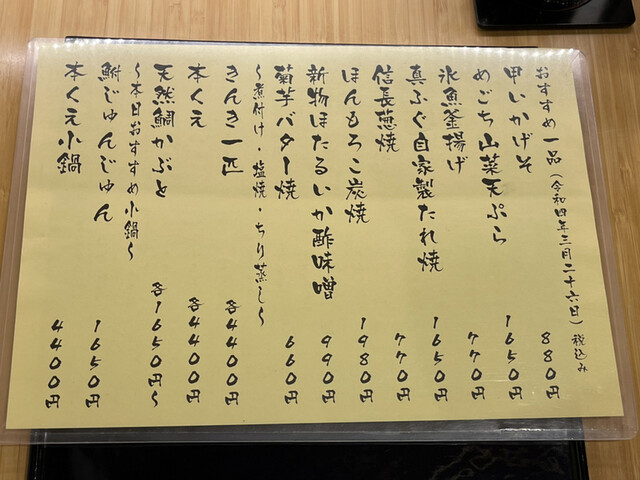 おすすめ一品(令和四年三月二十六日)税込み
甲いかげそ 880円
めごち山菜天ぷら 1650円
氷魚釜揚げ 770円
真ふぐ自家製たれ焼 1650円
信長葱焼 770円
ほんもろこ炭焼 1980円
新物ほたるいか酢味噌 990円
菊芋バター焼 660円
〜煮付け・塩焼・ちり蒸し〜
きんき一匹 各4400円
本くえ 各4400円
天然鯛かぶと 各1650円〜
〜本日おすすめ小鍋〜
鮒じゅんじゅん 1650円
本くえ小鍋 4400円